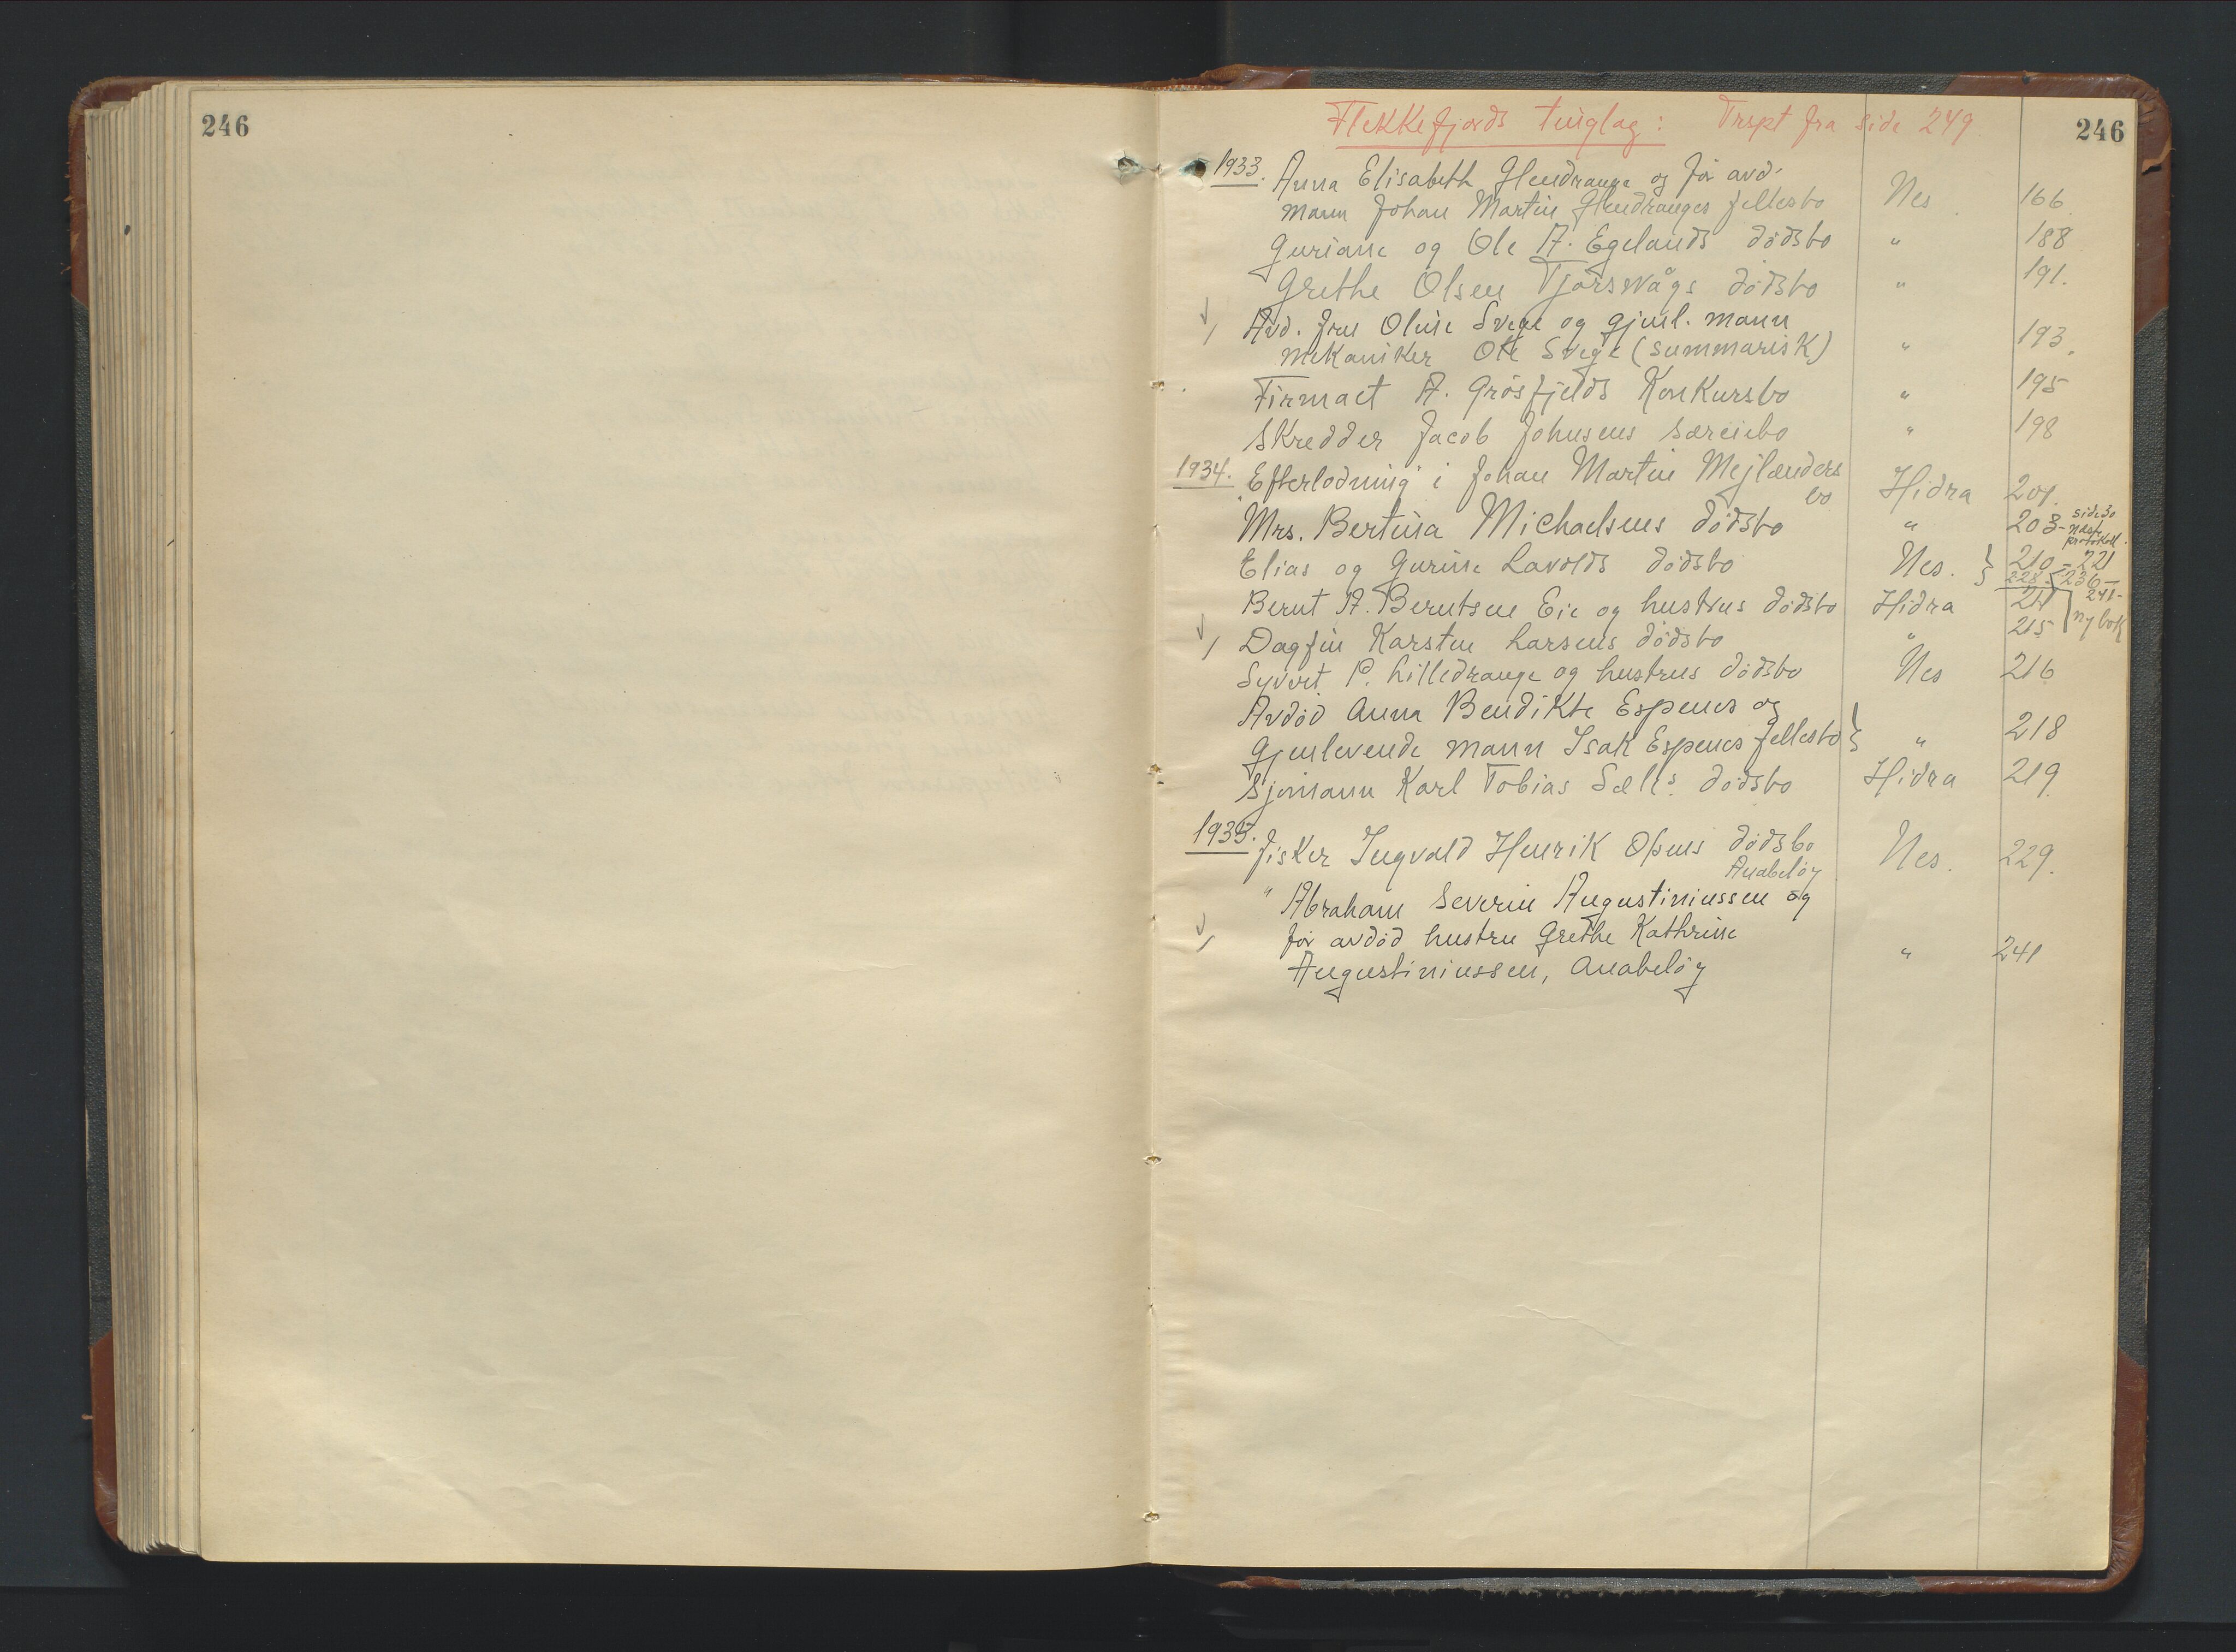 246
Flekkefjords tinglag: Trspt fra side 249
246
1933. Anna Elisabeth Glendrange og før avd.
mann Johan Martin Glendranges fellesbo Nes. 166
Guriane og Ole A. Egelands dødsbo " 188
Grethe Olsen Tjørsvågs dødsbo " 191.
Avd. fru Oline Svege og gjenl. mann
mekaniker Ole Svege (summarisk) " 193.
Firmaet A. Grøsfjelds Konkursbo " 195
Skredder Jacob Johnsens særeiebo " 198
1934. Efterlodning i Johan Martin Mejlænders
bo Hidra 201.
Mrs. Bertina Michaelsens dødsbo " 203- side 30 næste protokoll.
Elias og Gurine Lavolds dødsbo Nes. } 210-221
228-236-
241-
Bernt A. Berntsen Eie og hustrus dødsbo Hidra 211
Dagfin Karsten Larsens dødsbo " 215 ny bok
Syvert P. Lilledrange og hustrus dødsbo Nes 216
Avdød Anna Bendikte Espenes og
gjenlevende mann Isak Espenes fellesbo } " 218
Sjømann Karl Tobias Sæls dødsbo Hidra 219.
1935. fisker Ingvald Henrik Olsens dødsbo Nes. 229.
Anabeløy
" Abraham Severin Augustiniussen og
før avdød hustru Grethe Kathrine
Augustiniussen, Anabeløy " 241